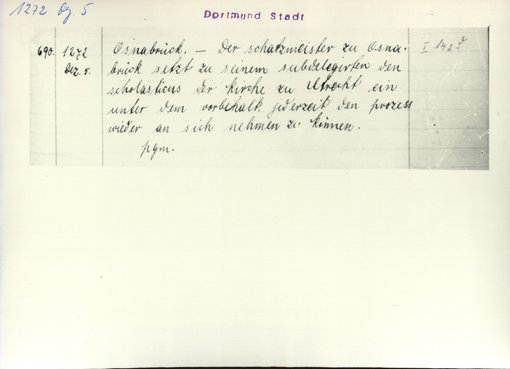 1272 Dz. 5
Dortmund Stadt
690. 1272 Osnabrück. – Der schatzmeister zu Osna- I 142d
Dez. 5. brück setzt zu seinem subdelegirten den
scholasticus der kirche zu Utrecht ein
unter dem vorbehalt jederzeit den prozess
wieder an sich nehmen zu können.
pgm.